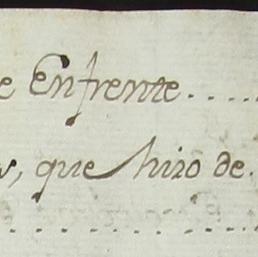 e Enfrente.....
, que hizo de.